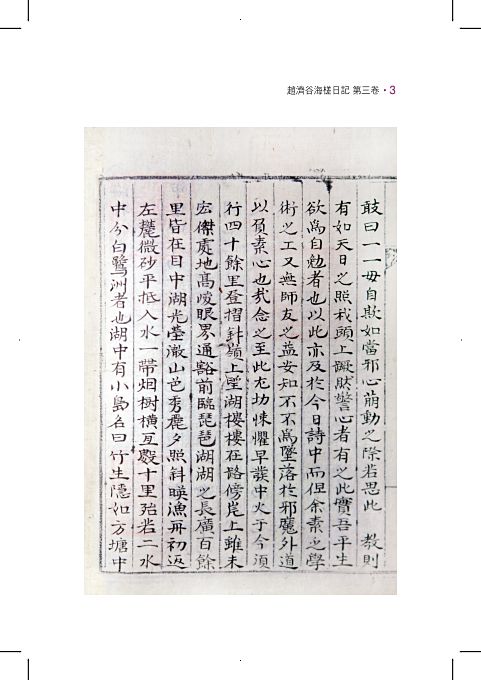 趙濟谷海槎日記 第三卷 · 3
敢曰一一毋自欺如當邪心萠動之際若思此 教則
有如天日之照我頭上蹶然警心者有之此實吾平生
欲爲自勉者也以此亦及於今日詩中而但余素之學
術之工又無師友之益安知不不爲墜落於邪魔外道
以負素心也哉念之至此尤切悚懼早發中火于今須
行四十餘里登摺針嶺上望湖樓樓在路傍崑上雖未
宏傑處地高峻眼界通豁前臨琵琶湖湖之長廣百餘
里皆在目中湖光瑩澈山色秀麗夕照斜暎漁舟初返
左麓微砂平抵入水一帶烟樹橫亙數十里殆若二水
中分白鷺洲者也湖中有小島名曰竹生隱如方塘中